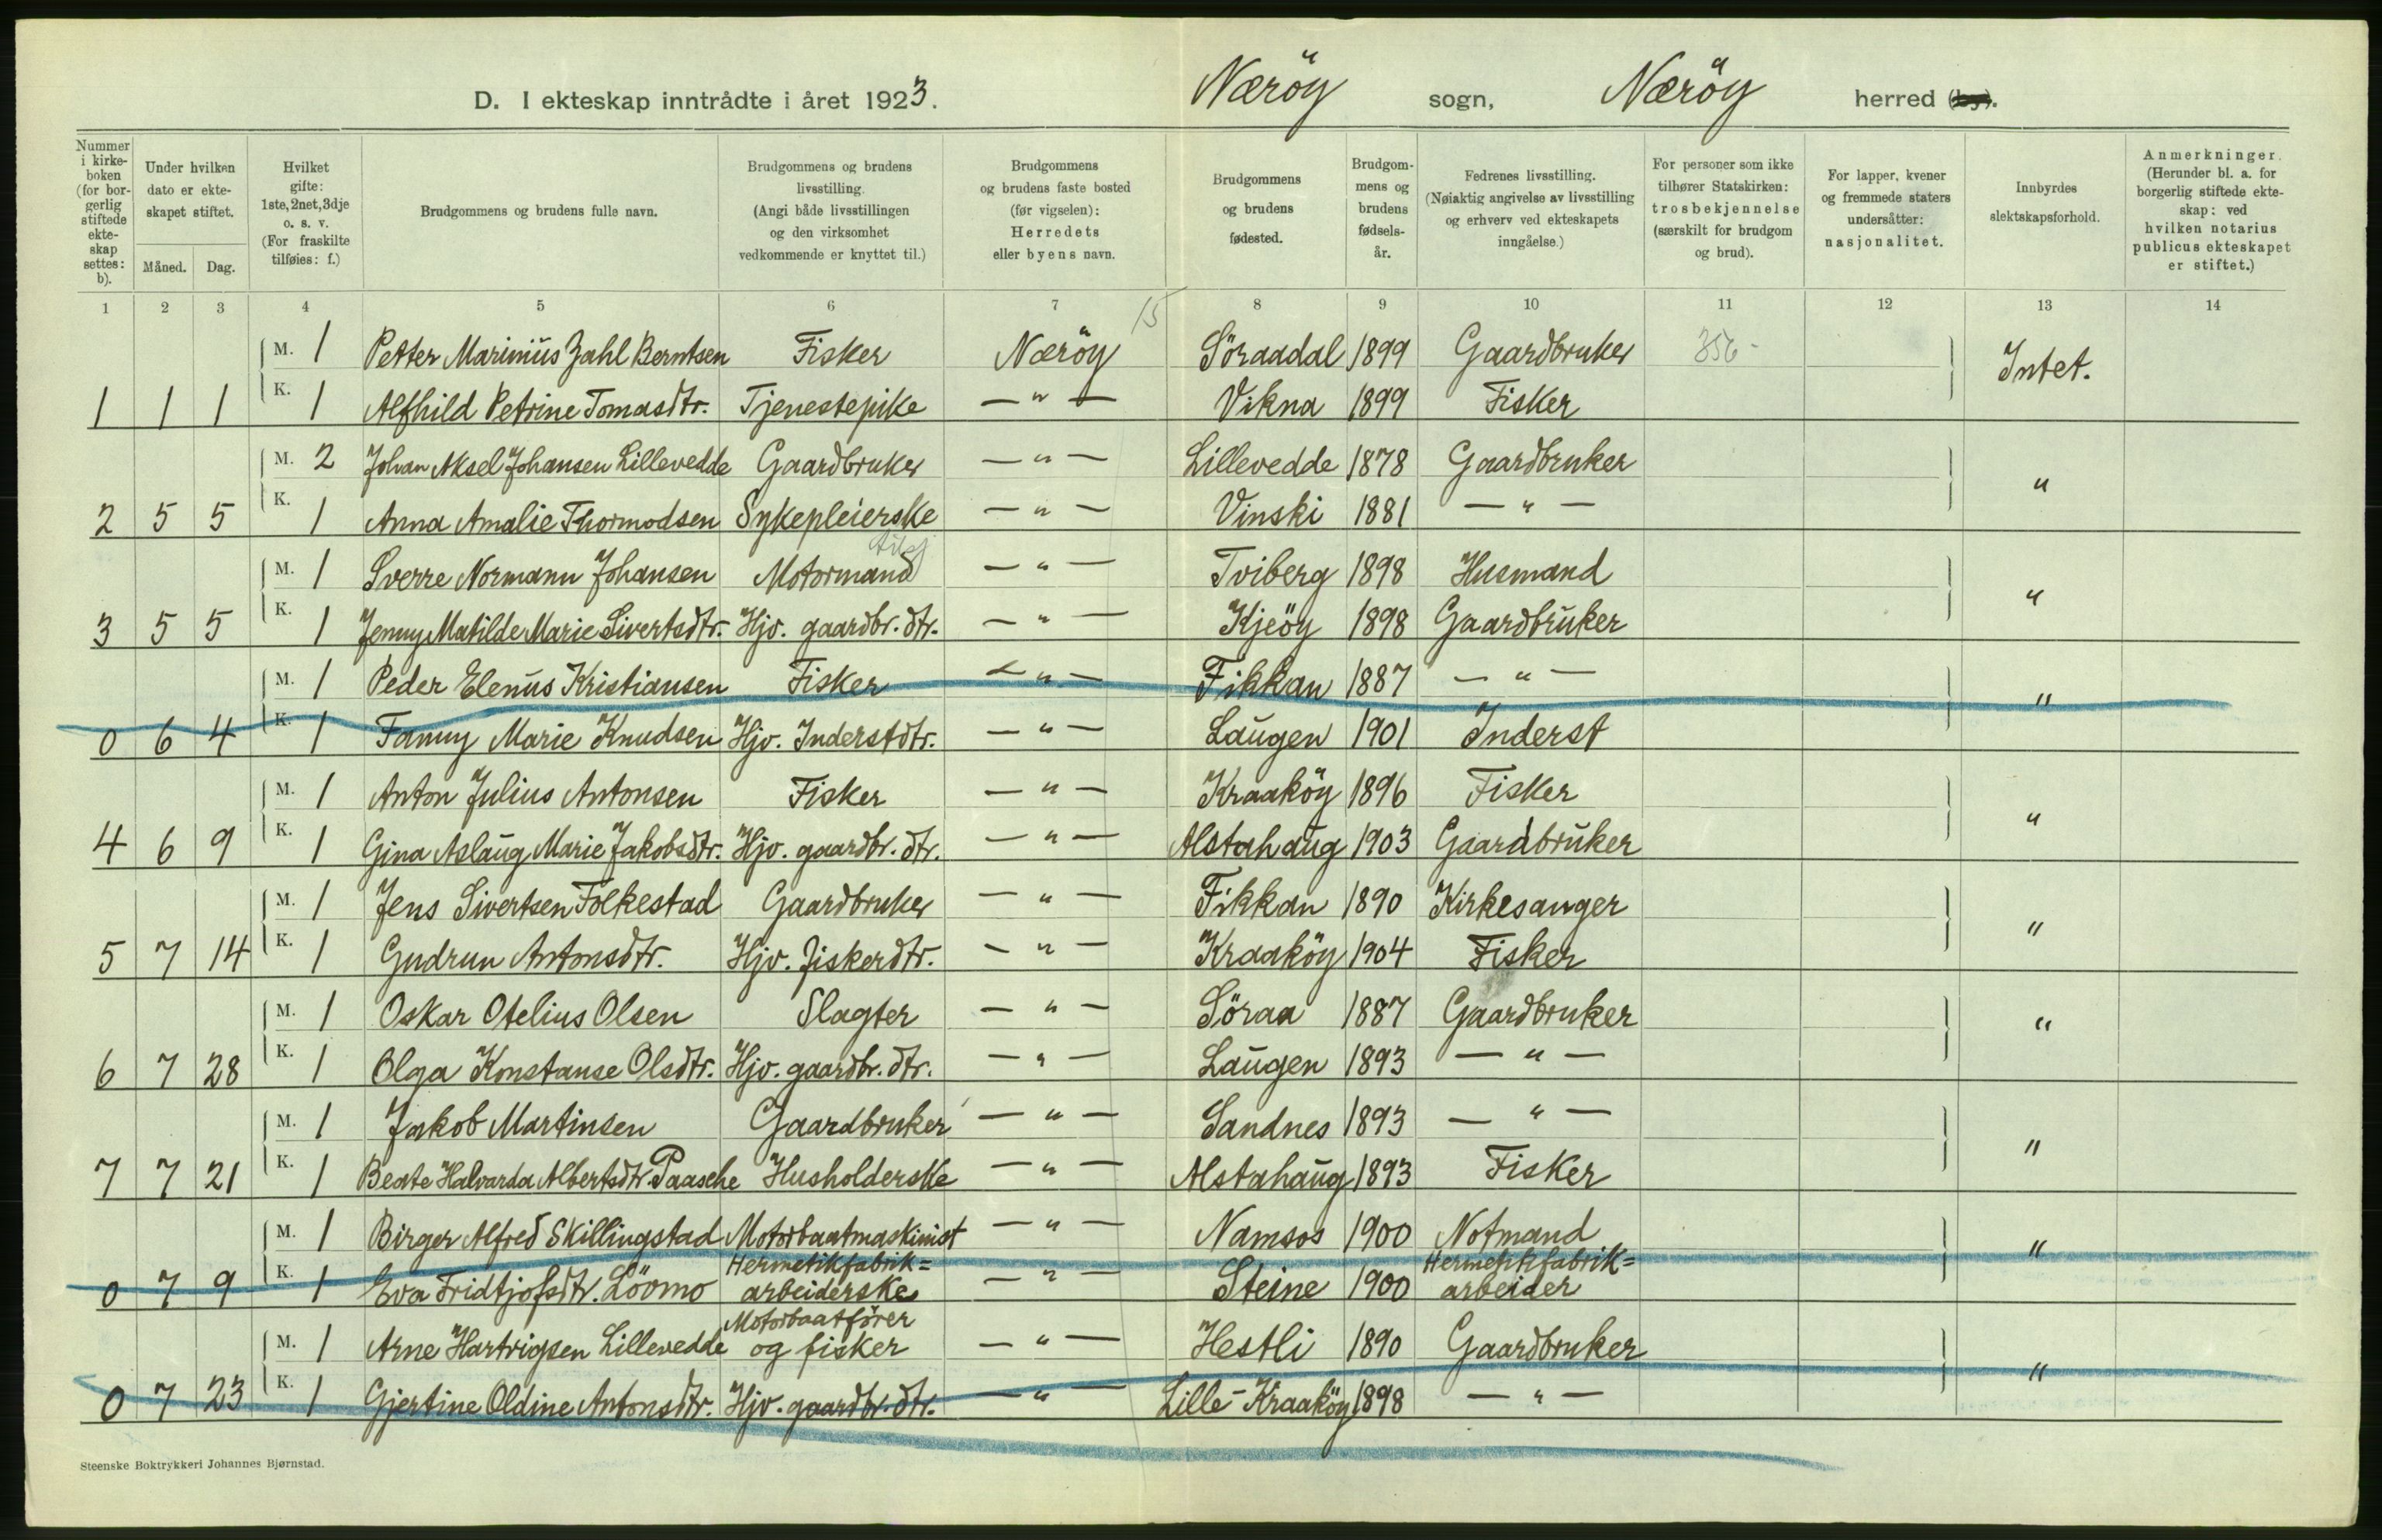 D. I ekteskap inntrådte i året 1923. Nærøy sogn, Nærøy herred (by).
Nummer i kirke-boken (for bor-gerlig stiftede ekte-skap settes: b).
Under hvilken dato er ekte-skapet stiftet.
Måned. Dag.
Hvilket gifte: 1ste, 2net, 3dje o. s. v. (For fraskilte tilføies: f.)
Brudgommens og brudens fulle navn.
Brudgommens og brudens livsstilling. (Angi både livsstillingen og den virksomhet vedkommende er knyttet til.)
Brudgommens og brudens faste bosted (før vigselen): Herredets eller byens navn.
Brudgommens og brudens fødested.
Brudgom-mens og brudens fødsels-år.
Fedrenes livsstilling. (Nøiaktig angivelse av livsstilling og erhverv ved ekteskapets inngåelse.)
For personer som ikke tilhører Statskirken: trosbekjennelse (særskilt for brudgom og brud).
For lapper, kvener og fremmede staters undersåtter: nasjonalitet.
Innbyrdes slektskapsforhold.
Anmerkninger. (Herunder bl. a. for borgerlig stiftede ekte-skap: ved hvilken notarius publicus ekteskapet er stiftet.)
1 2 3 4 5 6 7 8 9 10 11 12 13 14
15
M. 1 Petter Marinius Zahl Berntsen Fisker Nærøy Søraadal 1899 Gaardbruker 356- Intet.
1 1 1 K. 1 Alfhild Petrine Tomasdtr. Tjenestepike — " — Vikna 1899 Fisker
M. 2 Johan Aksel Johansen Lillevedde Gaardbruker — " — Lillevedde 1878 Gaardbruker "
2 5 5 K. 1 Anna Amalie Thormodsen Sykepleierske — " — Vinski 1881 — " —
M. 1 Sverre Normann Johansen Motormand — " — Tviberg 1898 Husmand "
3 5 5 K. 1 Jenny Matilde Marie Sivertsdtr. Hjv. gaardbr. dtr. — " — Kjeöy 1898 Gaardbruker
M. 1 Peder Elenus Kristiansen Fisker — " — Fikkan 1887 — " — "
0 6 4 K. 1 Fanny Marie Knudsen Hjv. Inderstdtr. — " — Laugen 1901 Inderst
M. 1 Anton Julius Antonsen Fisker — " — Kraaköy 1896 Fisker "
4 6 9 K. 1 Gina Aslaug Marie Jakobsdtr. Hjv. gaardbr. dtr. — " — Alstahaug 1903 Gaardbruker
M. 1 Jens Sivertsen Folkestad Gaardbruker — " — Fikkan 1890 Kirkesanger "
5 7 14 K. 1 Gudrun Antonsdtr. Hjv. fiskerdtr. — " — Kraaköy 1904 Fisker
M. 1 Oskar Otelius Olsen Slagter — " — Söraa 1887 Gaardbruker "
6 7 28 K. 1 Olga Konstanse Olsdtr. Hjv. gaardbr. dtr. — " — Laugen 1893 — " —
M. 1 Jakob Martinsen Gaardbruker — " — Sandnes 1893 — " — "
7 7 21 K. 1 Beate Halvarda Albertsdtr. Paasche Husholderske — " — Alstahaug 1893 Fisker
M. 1 Birger Alfred Skillingstad Motorbaatmaskinist — " — Namsos 1900 Notmand "
Hermetikfabrik= Hermetikfabrik=
0 7 9 K. 1 Eva Fridtjofsdtr. Löömo arbeiderske — " — Steine 1900 arbeider
Motorbaatförer
M. 1 Arne Hartvigsen Lillevedde og fisker — " — Hestli 1890 Gaardbruker "
0 7 23 K. 1 Gjertine Oldine Antonsdtr. Hjv. gaardbr. dtr. — " — Lille-Kraaköy 1898 — " —
Steenske Boktrykkeri Johannes Bjørnstad.